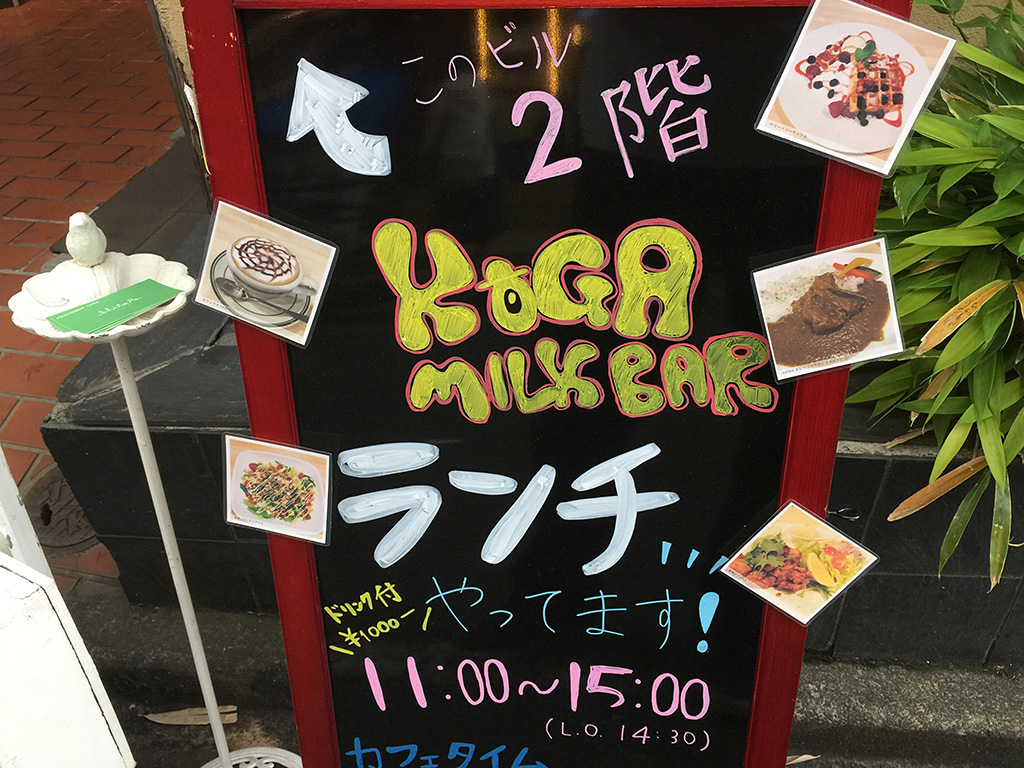 このビル
2階
KOGA
MILK BAR
ランチ
ドリンク付
¥1000-
やってます!
11:00〜15:00
(L.O. 14:30)
カフェタイム